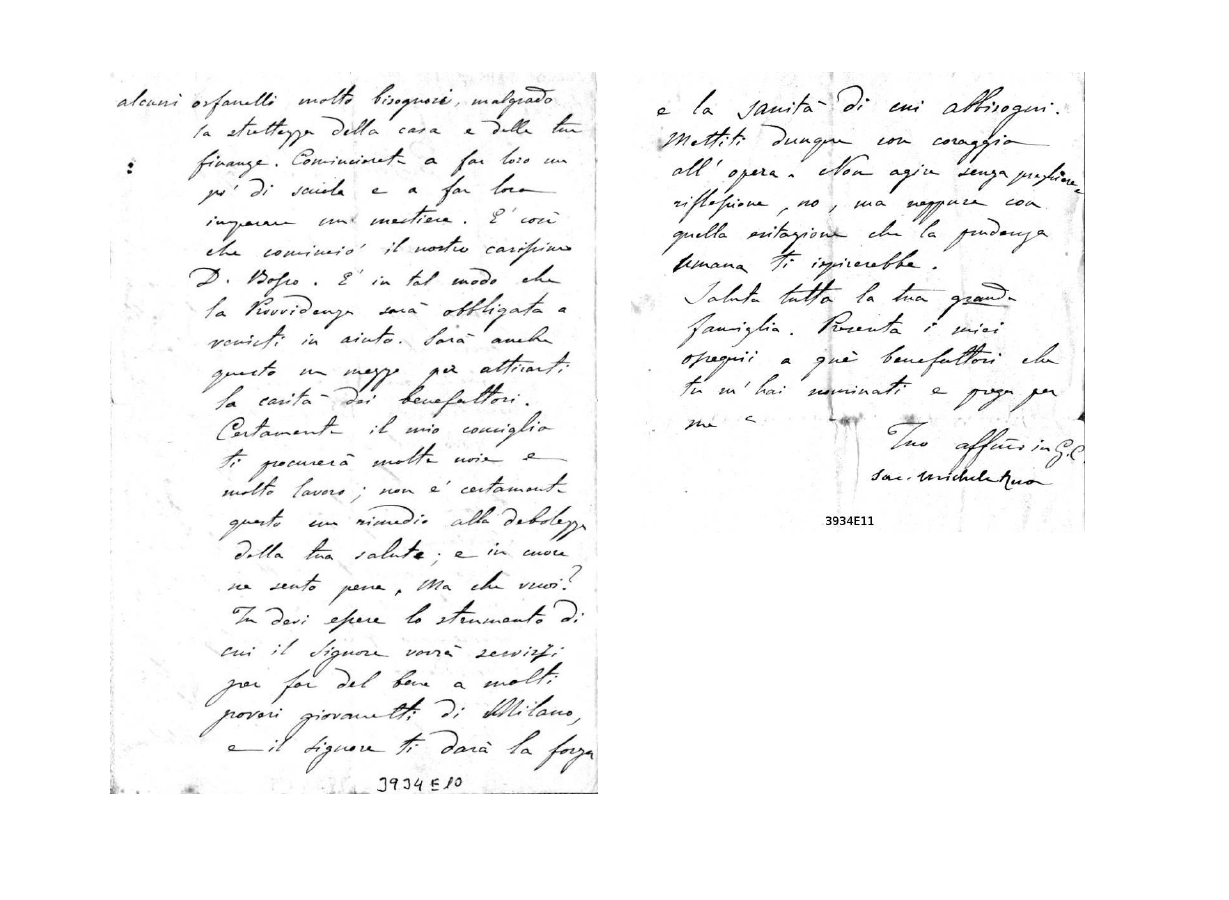 alcuni orfanelli molto bisognosi, malgrado
la strettezza della casa e delle tue
finanze. Comincierete a far loro un
po' di scuola e a far loro
imparare un mestiere. E' così
che cominciò il nostro carissimo
D. Bosco. E' in tal modo che
la Provvidenza sarà obbligata a
venirti in aiuto. Sarà anche
questo un mezzo per attirarti
la carità dei benefattori.
Certamente il mio consiglio
ti procurerà molte noie e
molto lavoro; non è certamente
questo un rimedio alla debolezza
della tua salute; e in cuore
ne sento pena, Ma che vuoi?
Tu devi essere lo strumento di
cui il Signore vorrà servirsi
per far del bene a molti
poveri giovanetti di Milano,
e il Signore ti darà la forza
3934E10
e la sanità di cui abbisogni.
Mettiti dunque con coraggio
all' opera. Non agire senza preghiere e
riflessione, no, ma neppure con
quella esitazione che la prudenza
umana ti ispirerebbe.
Saluta tutta la tua grande
famiglia. Presenta i miei
ossequii a què benefattori che
tu m' hai nominati e prega per
me
Tuo affmo in G. C.
Sac. Michele Rua
3934E11